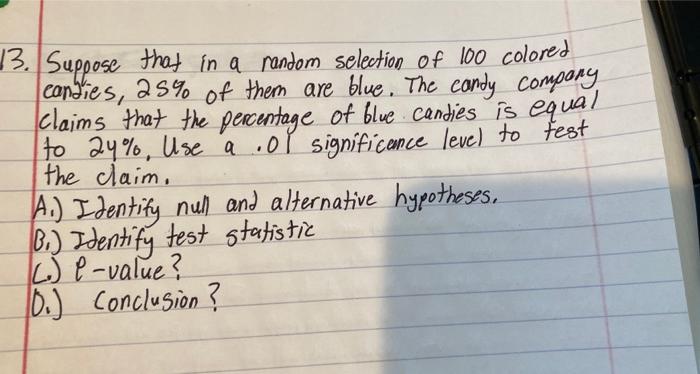 13. Suppose that in a random selection of 100 colored
candies, 25% of them are blue. The candy company
claims that the percentage of blue candies is equal
to 24%. Use a .01 significance level to test
the claim.
A.) Identify null and alternative hypotheses.
B.) Identify test statistic
C.) P-value?
D.) Conclusion?